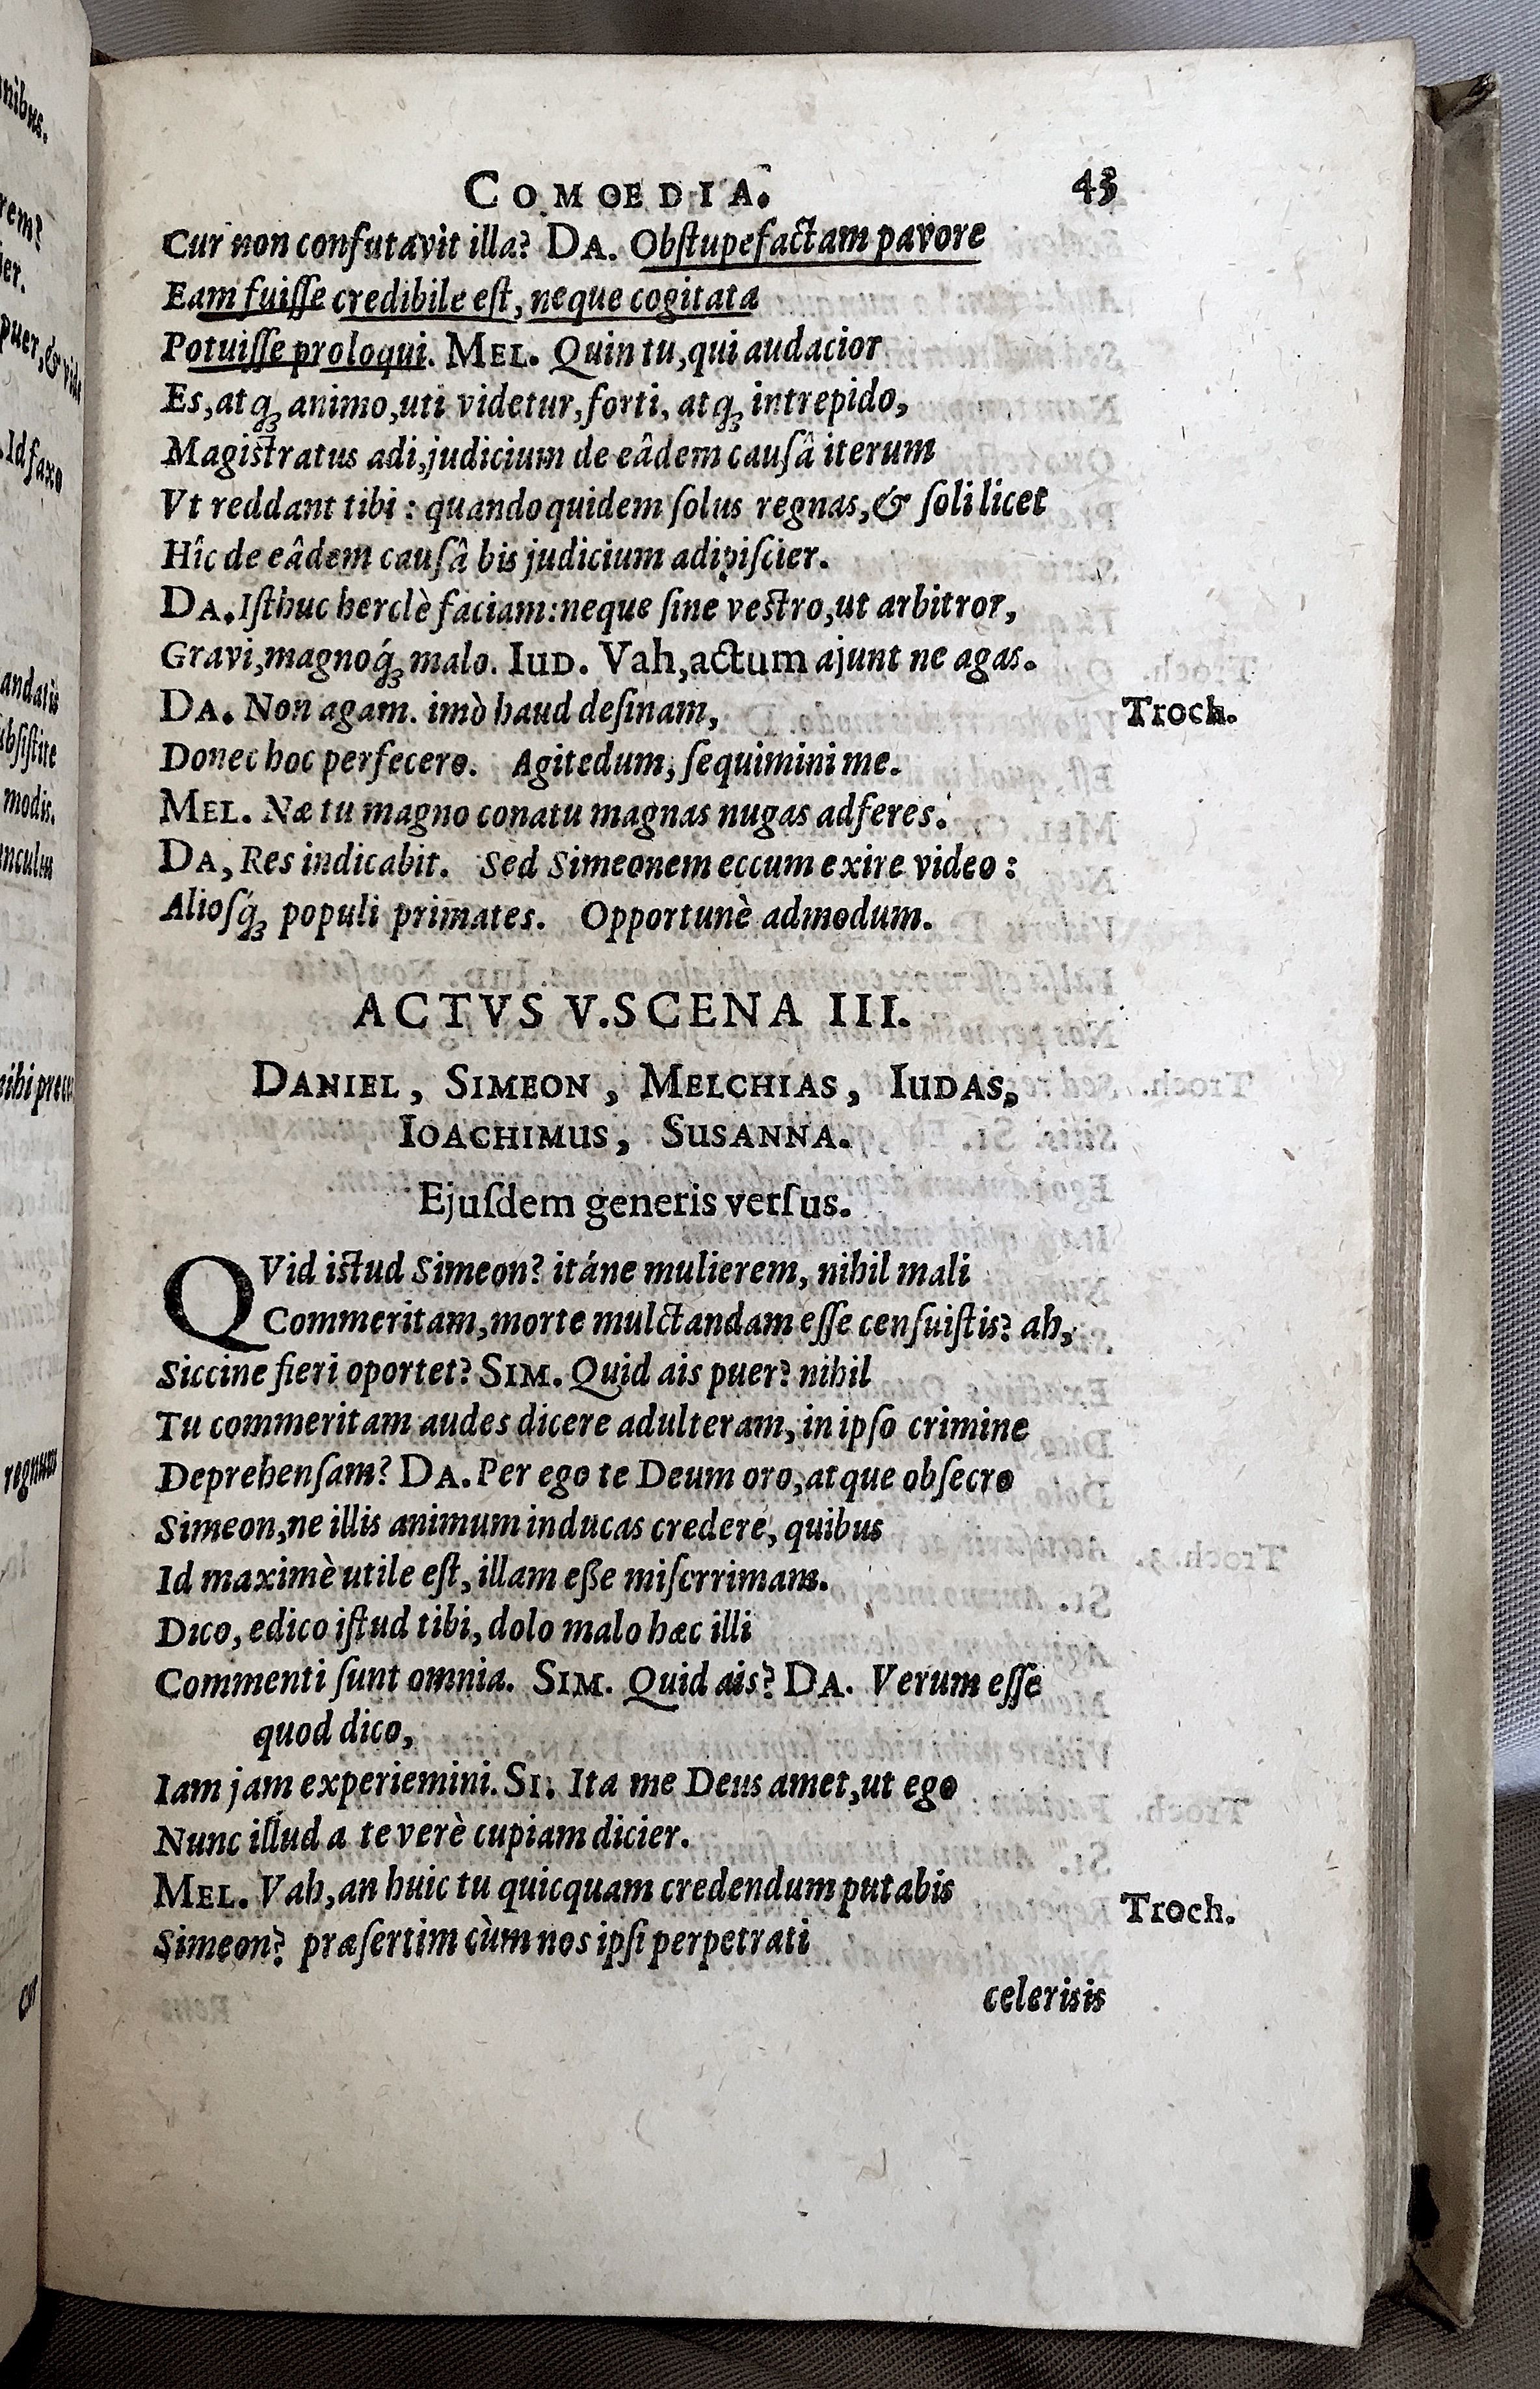 COMOEDIA. 43
Cur non confutavit illa? DA. Obſtupefactam pavore
Eam fuiſſe credibile eſt, neque cogitata
Potuiſſe proloqui. MEL. Quin tu, qui audacior
Es, atq; animo, uti videtur, forti, atq; intrepido,
Magistratus adi, judicium de eâdem cauſâ iterum
Vt reddant tibi: quandoquidem ſolus regnas, & ſoli licet
Hîc de eâdem cauſâ bis judicium adipiſcier.
DA. Iſthuc herclè faciam: neque ſine vestro, ut arbitror,
Gravi, magnoq́; malo. IUD. Vah, actum ajunt ne agas.
DA. Non agam. imò haud deſinam, Troch.
Donec hoc perfecero. Agitedum, ſequimini me.
MEL. Næ tu magno conatu magnas nugas adferes.
DA, Res indicabit. Sed Simeonem eccum exire video:
Alioſq́; populi primates. Opportunè admodum.
ACTVS V. SCENA III.
DANIEL, SIMEON, MELCHIAS, IUDAS,
IOACHIMUS, SUSANNA.
Ejuſdem generis verſus.
QVid istud Simeon? itáne mulierem, nihil mali
Commeritam, morte mulctandam eſſe cenſuiſtis? ah,
Siccine fieri oportet? SIM. Quid ais puer? nihil
Tu commeritam audes dicere adulteram, in ipſo crimine
Deprehenſam? DA. Per ego te Deum oro, atque obſecro
Simeon, ne illis animum inducas credere, quibus
Id maximè utile eſt, illam eſſe miſerrimam.
Dico, edico iſtud tibi, dolo malo hæc illi
Commenti ſunt omnia. SIM. Quid ais? DA. Verum eſſe
quod dico,
Iam jam experiemini. SI. Ita me Deus amet, ut ego
Nunc illud a te verè cupiam dicier.
MEL. Vah, an huic tu quicquam credendum putabis Troch.
Simeon? præſertim cùm nos ipſi perpetrati
celerisis